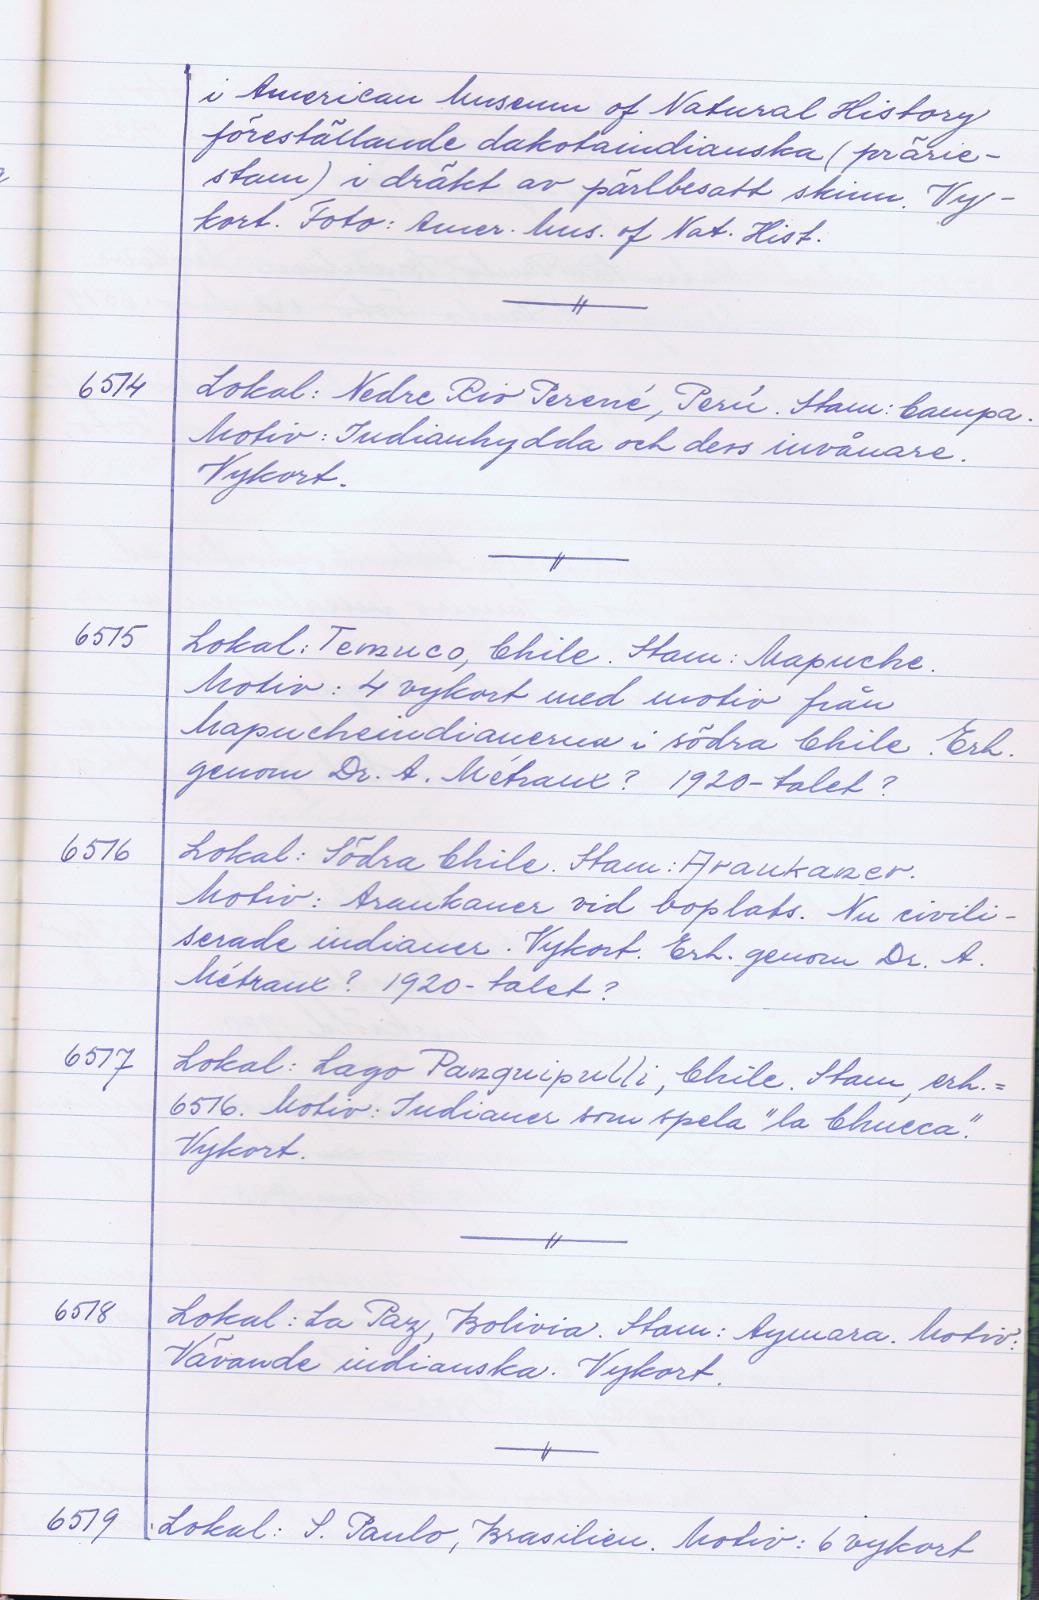 i American Museum of Natural History
föreställande dakotaindianska (prärie-
stam) i dräkt av pärlbesatt skinn. Vy-
kort. Foto: Amer. Mus. of Nat. Hist.
6514 Lokal: Nedre Rio Perené, Perú. Stam: Campa.
Motiv: Indianhydda och dess invånare.
Vykort.
6515 Lokal: Temuco, Chile. Stam: Mapuche.
Motiv: 4 vykort med motiv från
Mapucheindianerna i södra Chile. Erh.
genom Dr. A. Métraux? 1920-talet?
6516 Lokal: Södra Chile. Stam: Araukaner.
Motiv: Araukaner vid boplats. Nu civili-
serade indianer. Vykort. Erh. genom Dr. A.
Métraux? 1920-talet?
6517 Lokal: Lago Panguipulli, Chile. Stam, erh. =
6516. Motiv: Indianer som spela "la Chueca".
Vykort.
6518 Lokal: La Paz, Bolivia. Stam: Aymara. Motiv:
Vävande indianska. Vykort.
6519 Lokal: S. Paulo, Brasilien. Motiv: 6 vykort